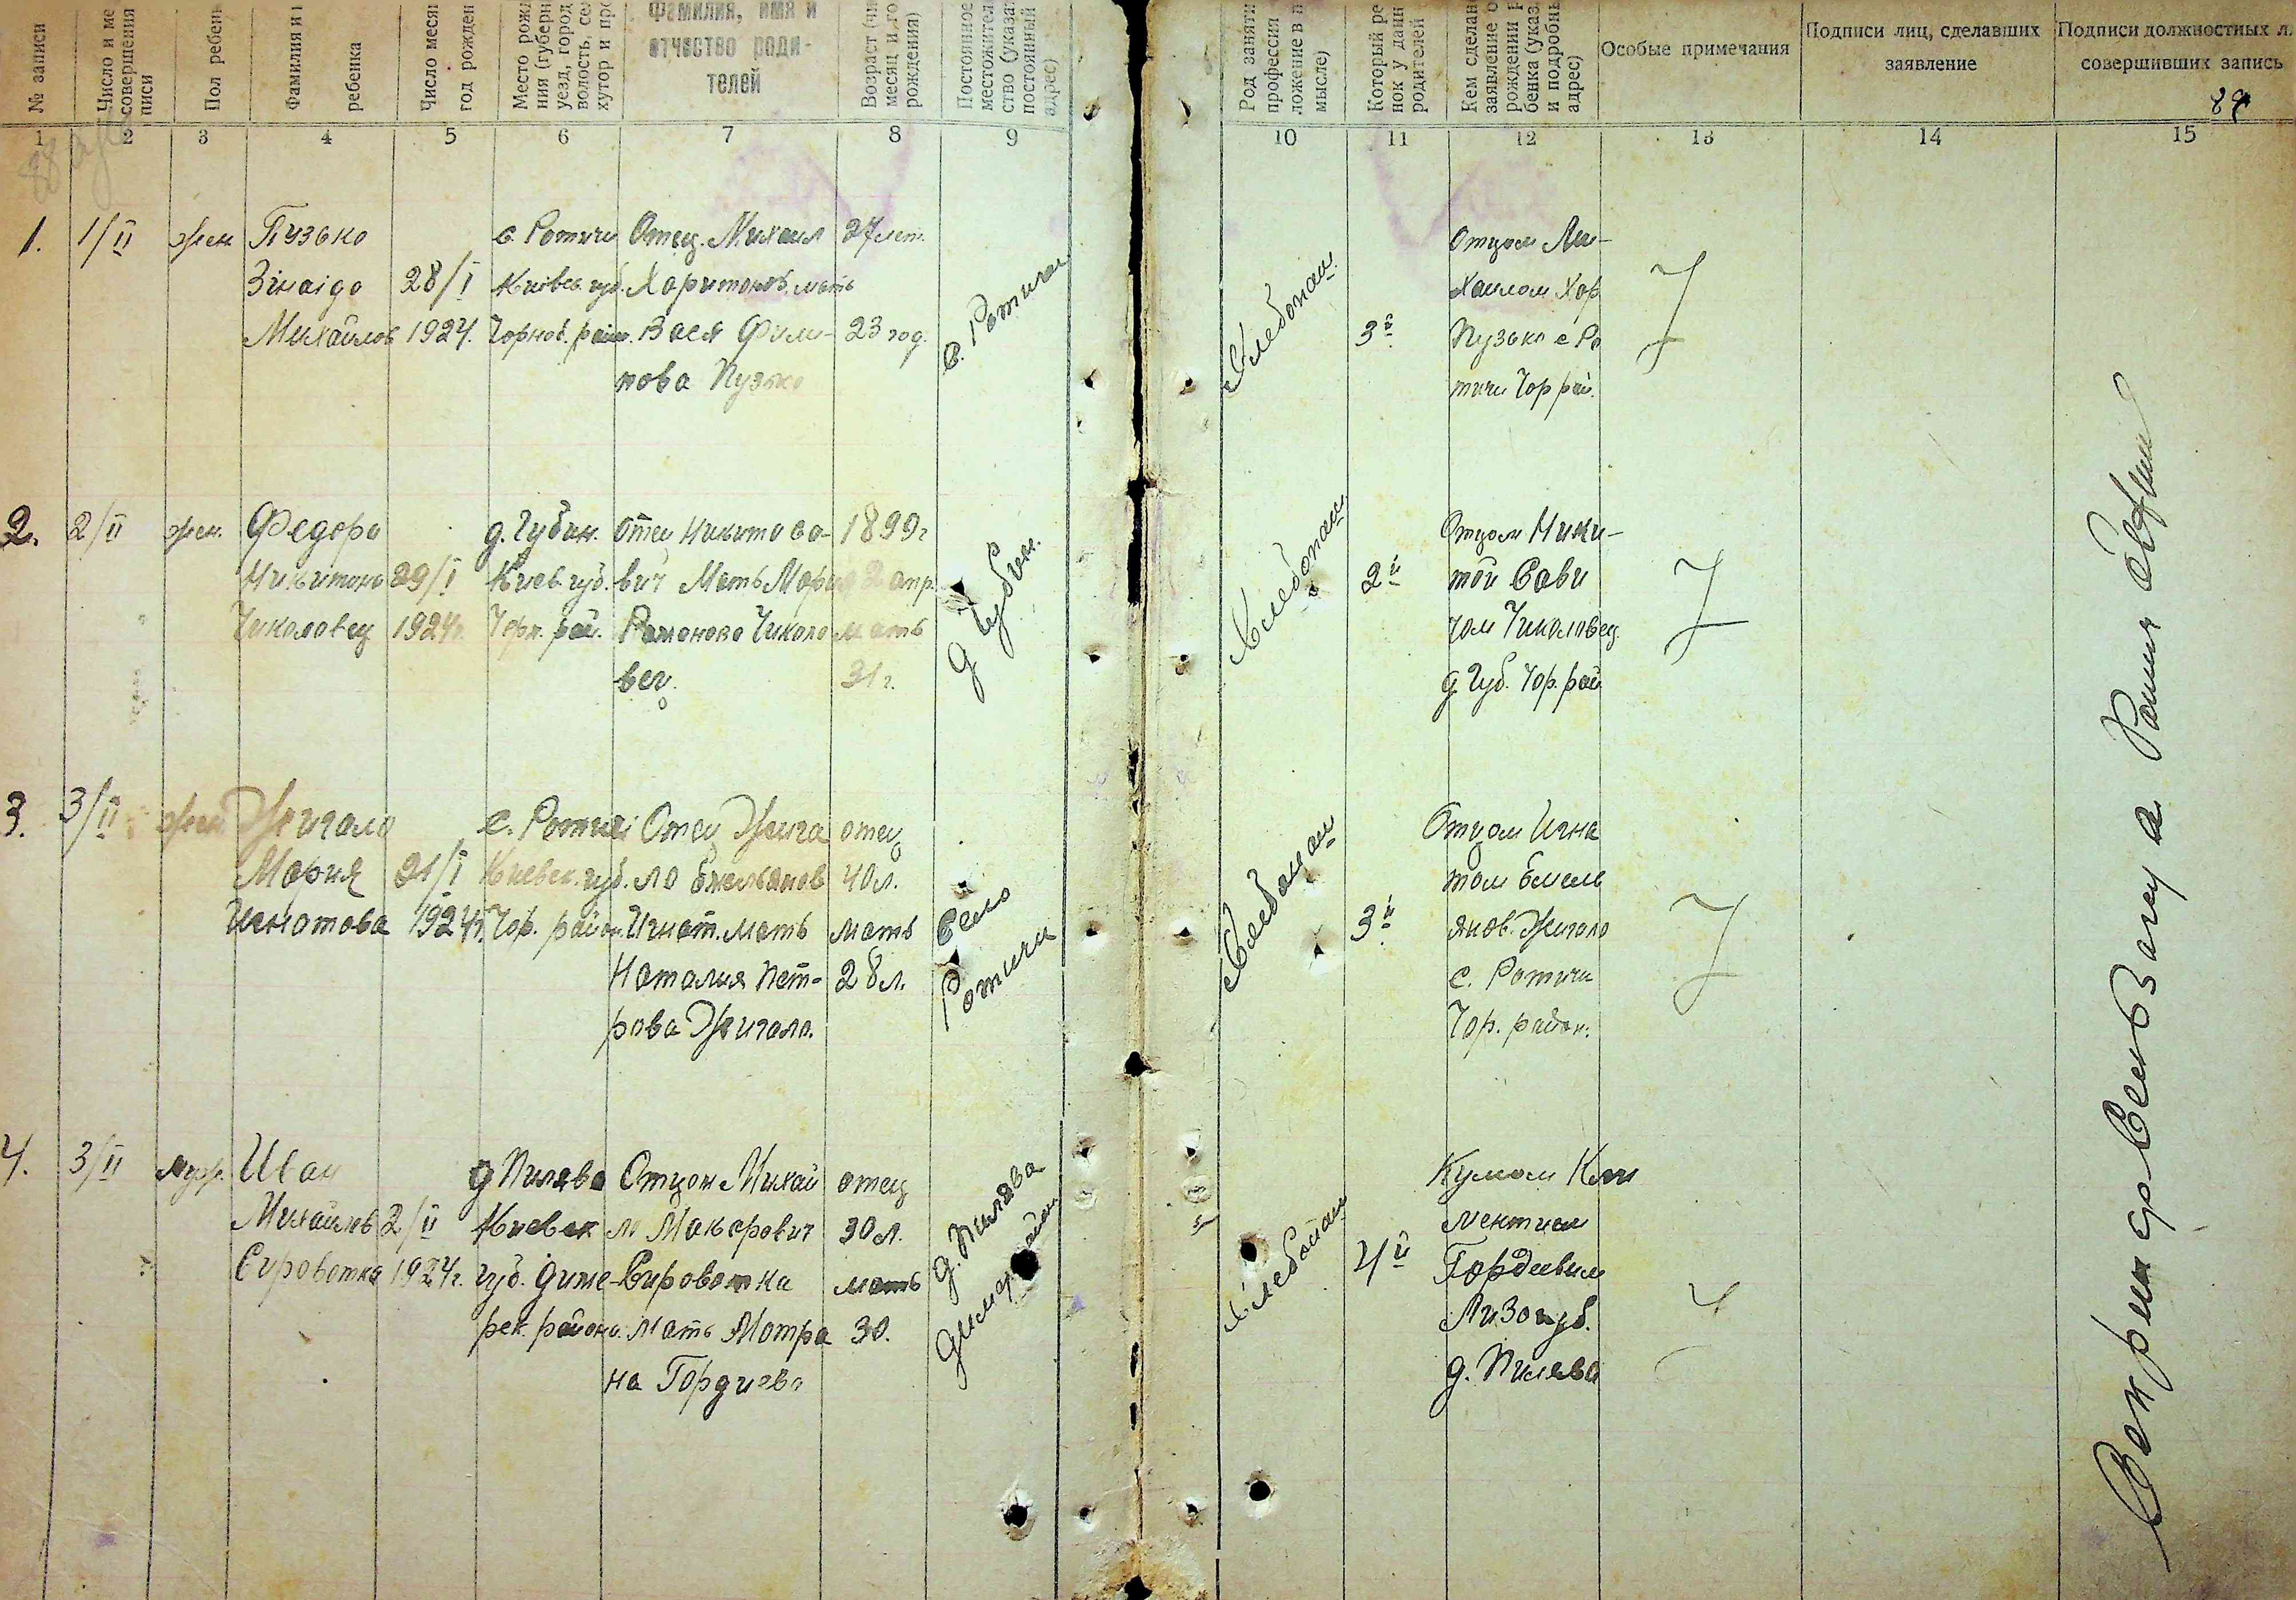 № записи
Число и ме
совершения
писи
Пол ребенк
Фамилия и
ребенка
Число меся
год рожден
Место рож
ния (губерн
уезд, город
волость, се
хутор и пр
фамилия, имя и
отчество роди-
телей
Возраст (чи
месяц и го
рождения)
Постоянное
местожител
ство (указа
постоянный
адрес)
Род заняти
профессия
ложение в п
мысле)
Который ре
нок у данн
родителей
Кем сделан
заявление о
рождении р
бенка (указ
и подробны
адрес)
Особые примечания
Подписи лиц, сделавших
заявление
Подписи должностных л
совершивших запись
1 2 3 4 5 6 7 8 9 10 11 12 13 14 15
1.
1/II
жен
Пузько
Зінаіда
Михайлов
28/I
1924.
с. Ротичи
Киевск. губ.
Чорноб. район.
Отец. Михаил
Харитонов. мать
Вася Фили-
пова Пузько
27 лет.
23 год.
с. Ротичи
Хлебопаш.
3й
Отцом Ми-
хаилом Хар
Пузько с Ро
тичи Чор рай.
2.
2/II
жен.
Федора
Никитова
Чиколовец
29/I
1924г.
д. Губин.
Киев. губ.
Чорн. рай.
Отец Никита Са-
вич Мать Мария
Романова Чиколо
вец.
1899г
2 апр.
мать
31 г.
д Губин.
Хлебопаш
2й
Отцом Ники-
той Сави
чом Чиколовец.
д. Губ. Чор. рай
3.
3/II
жен
Жигало
Мария
Игнатова
21/I
1924г.
с. Ротичі
Киевск. губ.
Чор. район.
Отец Жига
ло Емельянов
Игнат. мать
Наталия Пет-
рова Жигало.
отец
40 л.
мать
28 л.
Село
Ротичи
Хлебопаш
3й
Отцом Игна
том Емель
янов. Жигало
с. Ротичи
Чор. район.
4.
3/II
муж.
Иван
Михайлов
Сыроватка
2/II
1924г.
д Пилява
Киевск
губ. Диме-
рек. района
Отцом Михай
л Макарович
Сыроватка
Мать Мотра
на Гордиева
отец
30 л.
мать
30.
д. Пилява
Хлебопаш
4й
Кумом Кли
ментием
Гордеевим
Лизогуб.
д. Пилява